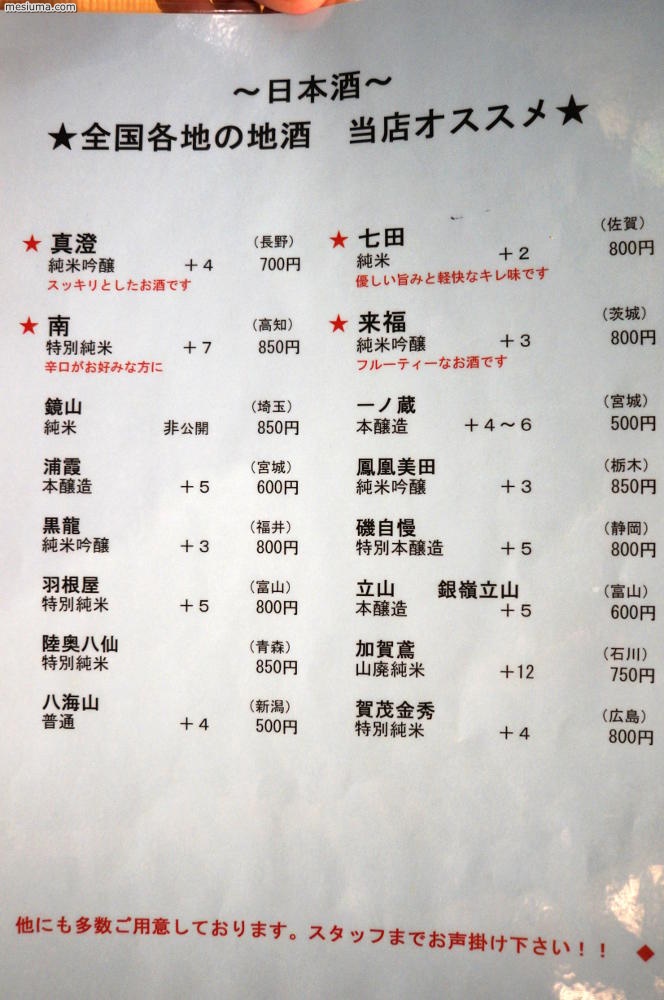 mesiuma.com
～日本酒～
★全国各地の地酒　当店オススメ★
★ 真澄 （長野）
純米吟醸 ＋４ 700円
スッキリとしたお酒です
★ 南 （高知）
特別純米 ＋７ 850円
辛口がお好みな方に
鏡山 （埼玉）
純米 非公開 850円
浦霞 （宮城）
本醸造 ＋５ 600円
黒龍 （福井）
純米吟醸 ＋３ 800円
羽根屋 （富山）
特別純米 ＋５ 800円
陸奥八仙 （青森）
特別純米 850円
八海山 （新潟）
普通 ＋４ 500円
★ 七田 （佐賀）
純米 ＋２ 800円
優しい旨みと軽快なキレ味です
★ 来福 （茨城）
純米吟醸 ＋３ 800円
フルーティーなお酒です
一ノ蔵 （宮城）
本醸造 ＋４～６ 500円
鳳凰美田 （栃木）
純米吟醸 ＋３ 850円
磯自慢 （静岡）
特別本醸造 ＋５ 800円
立山 銀嶺立山 （富山）
本醸造 ＋５ 600円
加賀鳶 （石川）
山廃純米 ＋12 750円
賀茂金秀 （広島）
特別純米 ＋４ 800円
他にも多数ご用意しております。スタッフまでお声掛け下さい！！ ◆